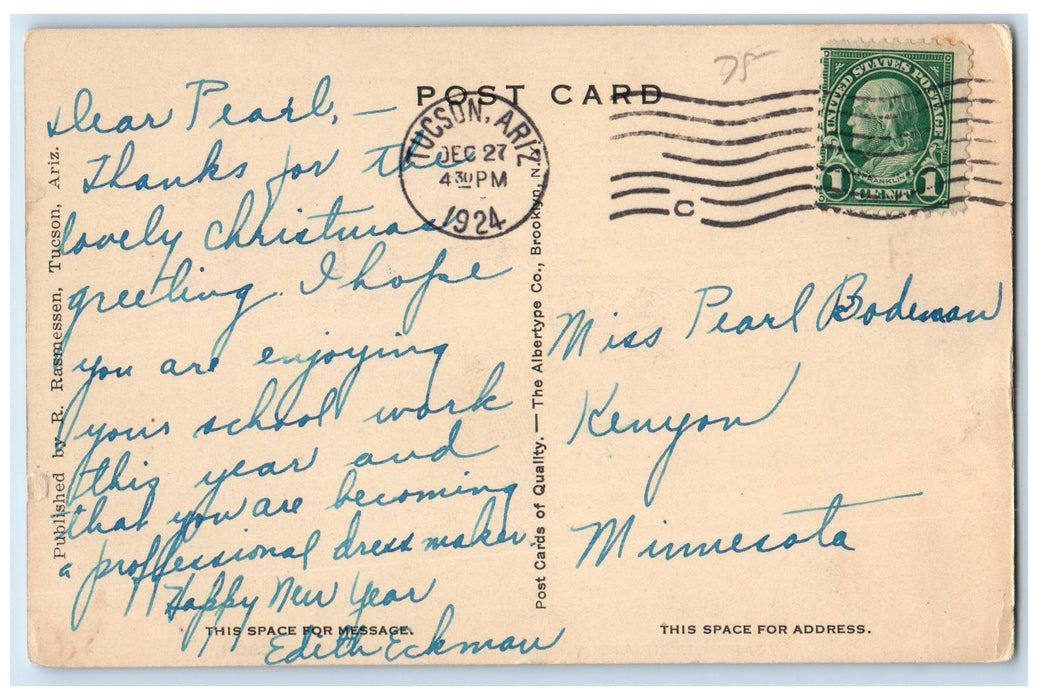 75
POST CARD
TUCSON, ARIZ.
DEC 27
4 30 PM
1924
C
UNITED STATES POSTAGE
FRANKLIN
1 CENT 1
Dear Pearl, —
Thanks for the
lovely Christmas
greeting. I hope
you are enjoying
your school work
this year and
that you are becoming
a proffessional dress maker.
Happy New Year
Edith Eckman
Published by R. Rasmessen, Tucson, Ariz.
Post Cards of Quality. — The Albertype Co., Brooklyn, N.Y.
Miss Pearl Bodeman
Kenyon
Minnesota
THIS SPACE FOR MESSAGE.
THIS SPACE FOR ADDRESS.